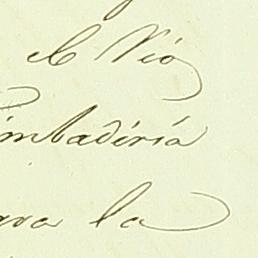 el Rio
imbadiria
ara la